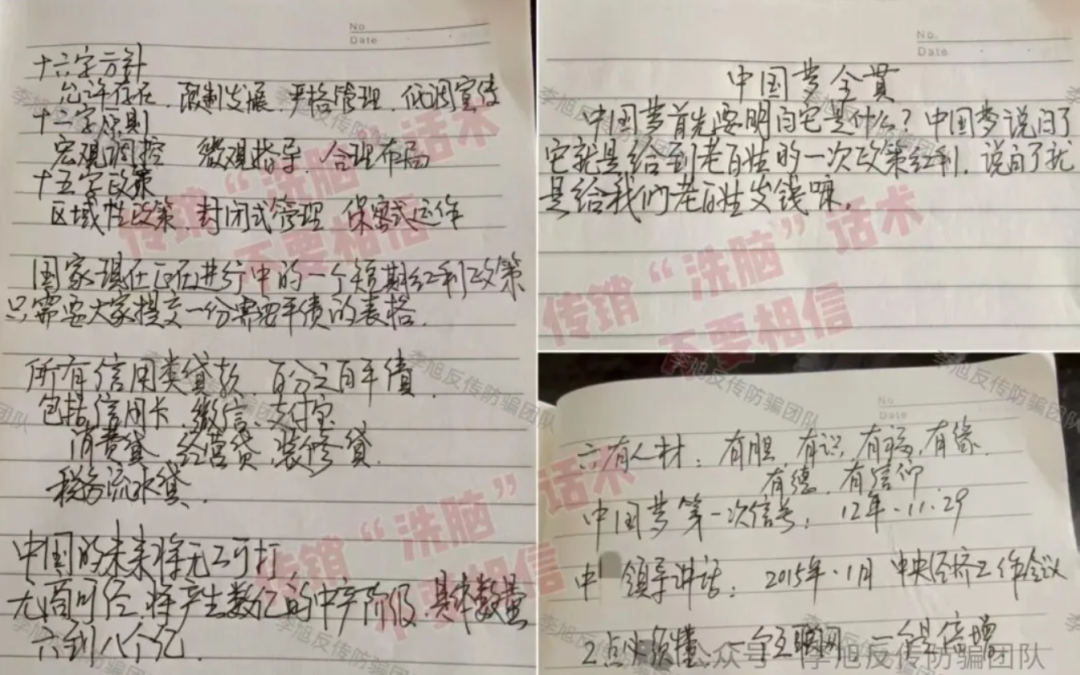 No
Date
十六字方针
允许存在、限制发展、严格管理、低调宣传
十二字原则
宏观调控 微观指导 合理布局
十五字政策
区域性政策、封闭式管理 保密式运作
国家现在正在进行中的一个短期红利政策
只需要大家提交一份需要平债的表格.
所有信用类贷款 百分之百平债
包括信用卡、微信、支付宝
消费贷 经营贷 装修贷
税务流水贷.
中国的未来将无工可打
无商可经,将产生数亿的中产阶级,具体数量
六到八个亿.
No.
Date
中国梦全贯
中国梦首先要明白它是什么?中国梦说白了
它就是给到老百姓的一次政策红利.说白了就
是给我们老百姓发钱嘛.
No
Date
六有人材:有胆、有识、有福、有缘、
有德、有信仰
中国梦第一次信号:12年.11.29
中 领导讲话:2015年.1月 中央经济工作会议
2点必须懂:一个互联网 一个是倍增
传销“洗脑”话术
不要相信
传销“洗脑”话术
不要相信
传销“洗脑”话术
不要相信
李旭反传防骗团队
公众号·李旭反传防骗团队